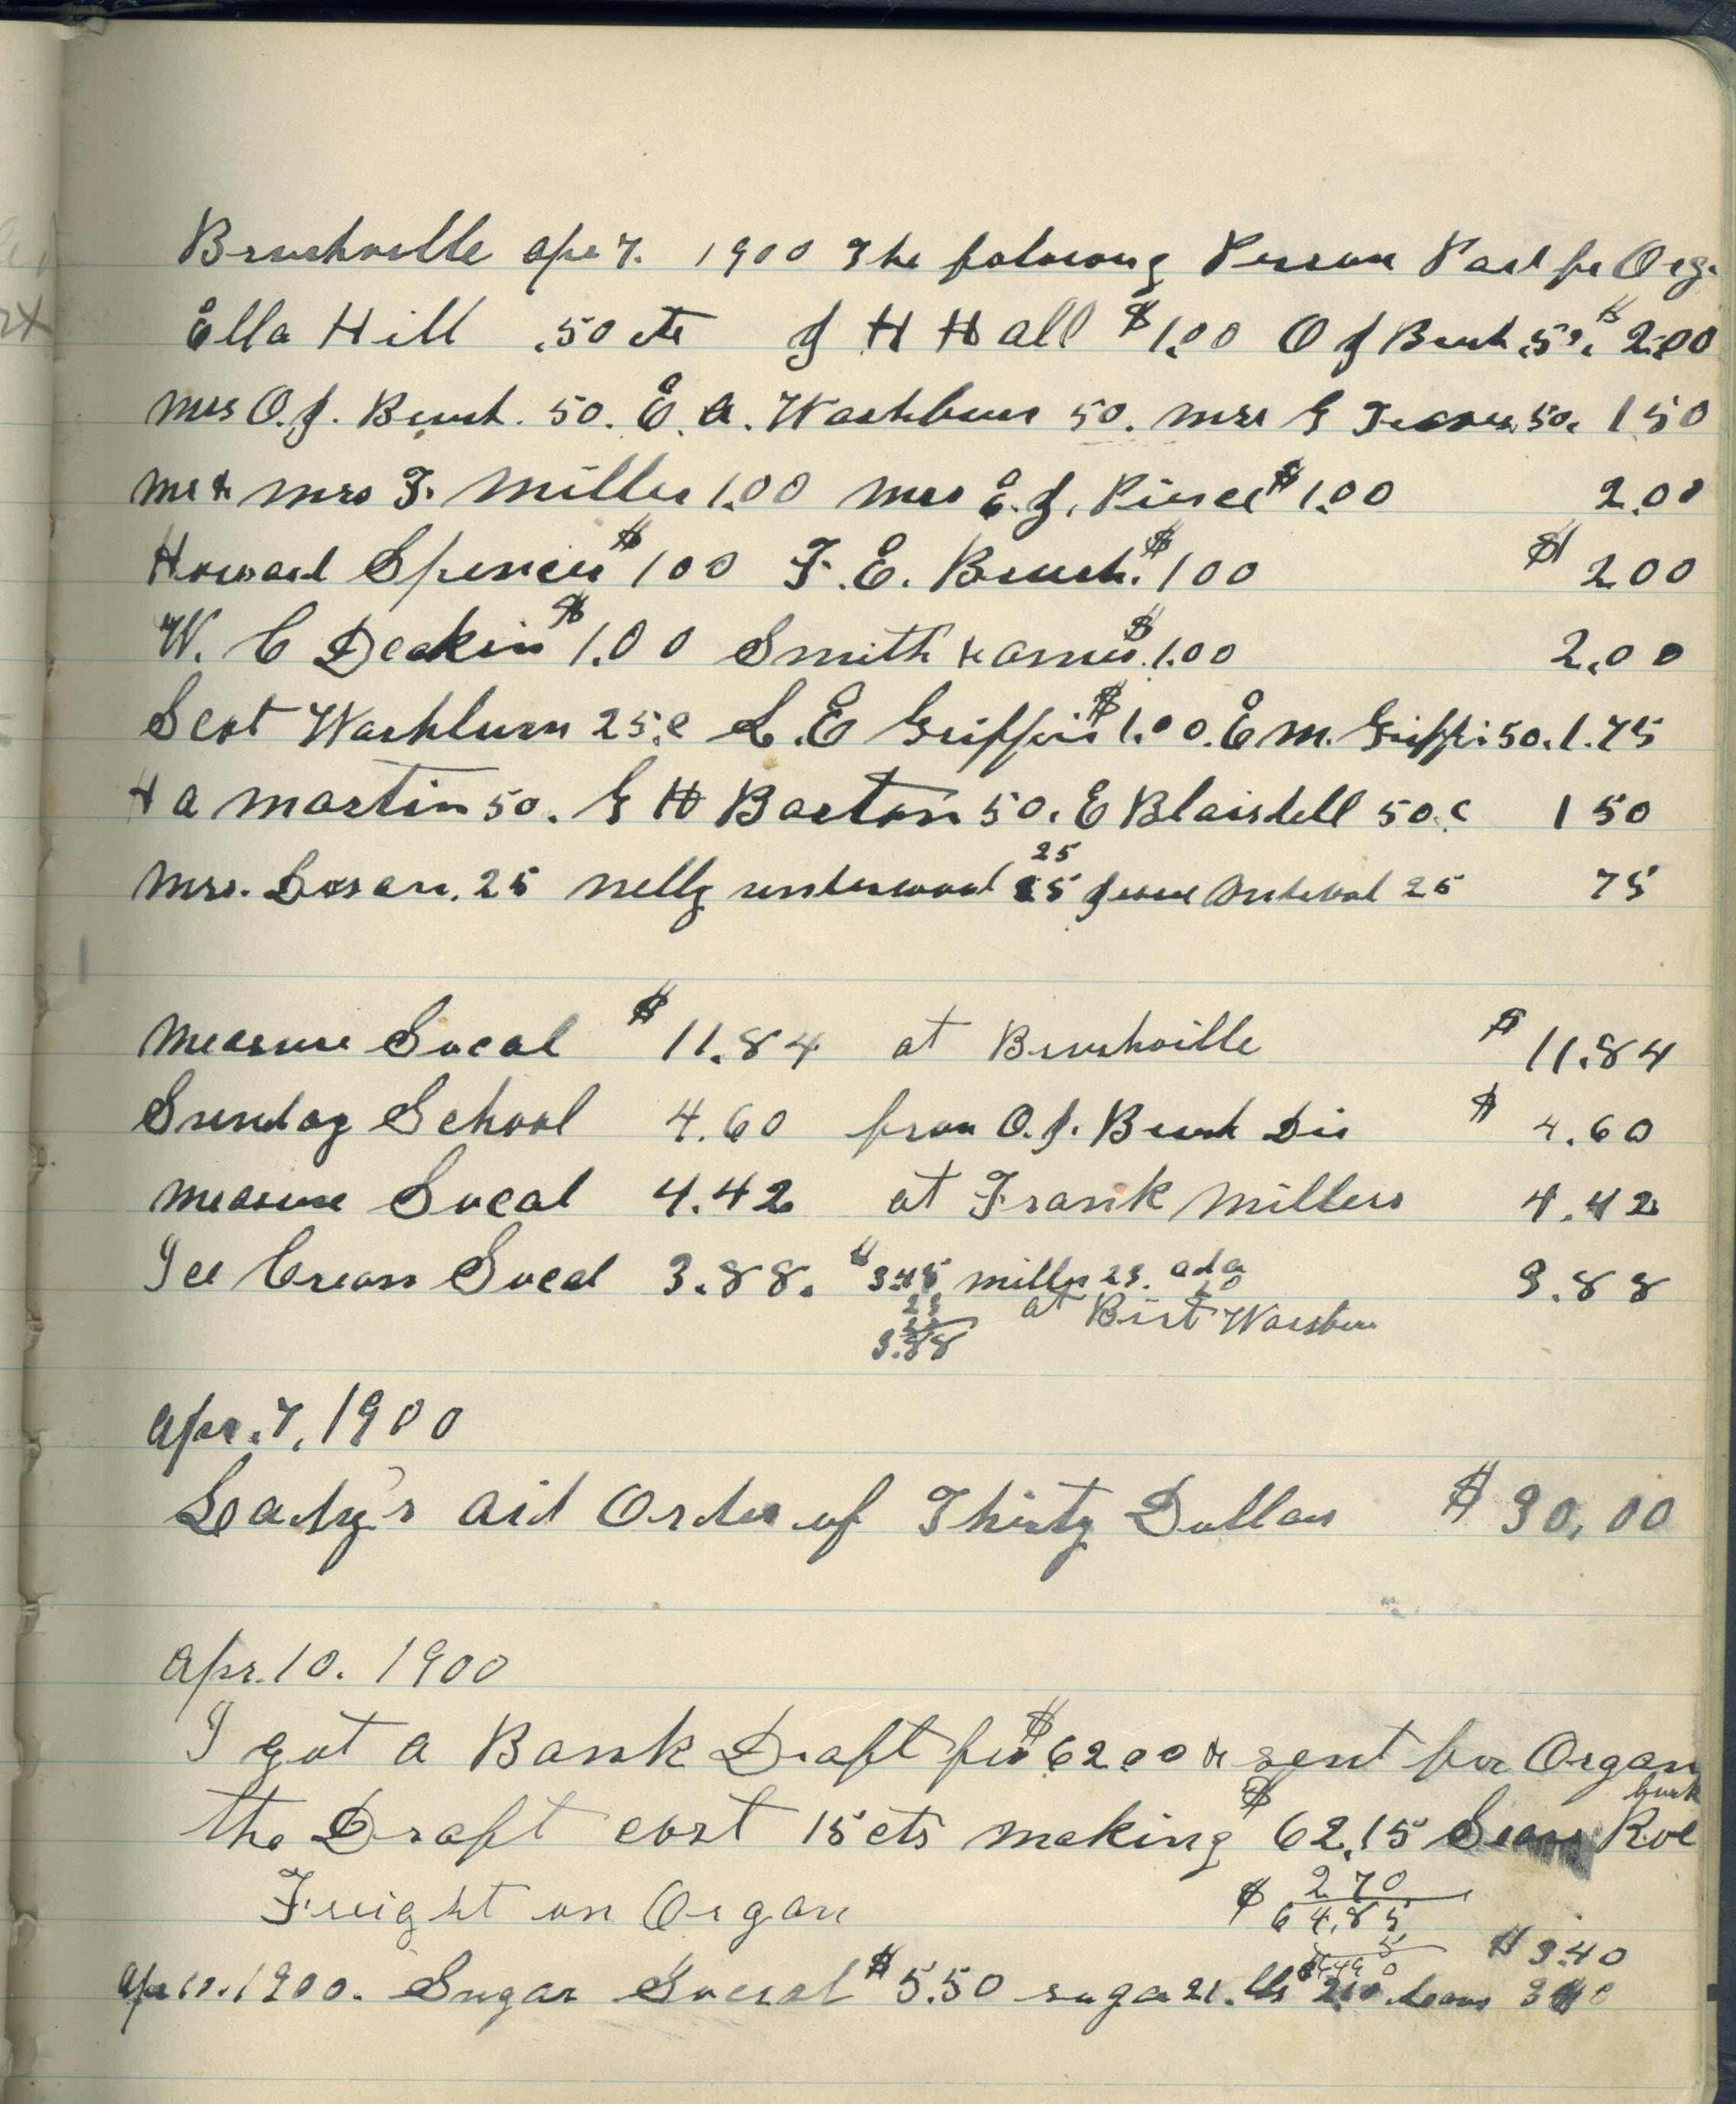 Brushville Apr 7. 1900 The folowing Person Paid for Org.
Ella Hill .50 cts J H Hall $1.00 O J Brush .50. $2.00
Mrs O.J. Brush. 50. E. A. Washburn 50. Mrs G 50. 1 50
Mr & Mrs F. Miller 1.00 Mrs E. J. Pierce $1.00 2.00
Howard Spencer $100 F. E. Brush. $100 $200
W. C Deakin $1.00 Smith & $1.00 2.00
Scot Washburn 25.c L. E Griffin $1.00. E M. Griffi 50. 1.75
H A Martin 50. G H Barton 50. E Blaisdell 50.c 1 50
Mrs. 25 Nelly Underwood 25 25 25 75
Measure Socal $11.84 at Brushville $11.84
Sunday School 4.60 from O.J. Brush Dis $4.60
Measure Socal 4.42 at Frank Millers 4.42
Ice Cream Socal 3.88. $3.45 Miller 23. ada 20 3.88
23 at Birt Washburn
20
3.88
Apr. 7, 1900
Leady's Aid Order of Thirty Dollars $30.00
Apr. 10. 1900
I got a Bank Draft for $62.00 & sent for Organ
the Draft cost 15 cts making $62.15 Sears Roe buck
Freight on Organ 2.70
$64.85
5
$3.40
Apr 10. 1900. Sugar Social $5.50 sugar 21. lbs 2.10 leavs 340